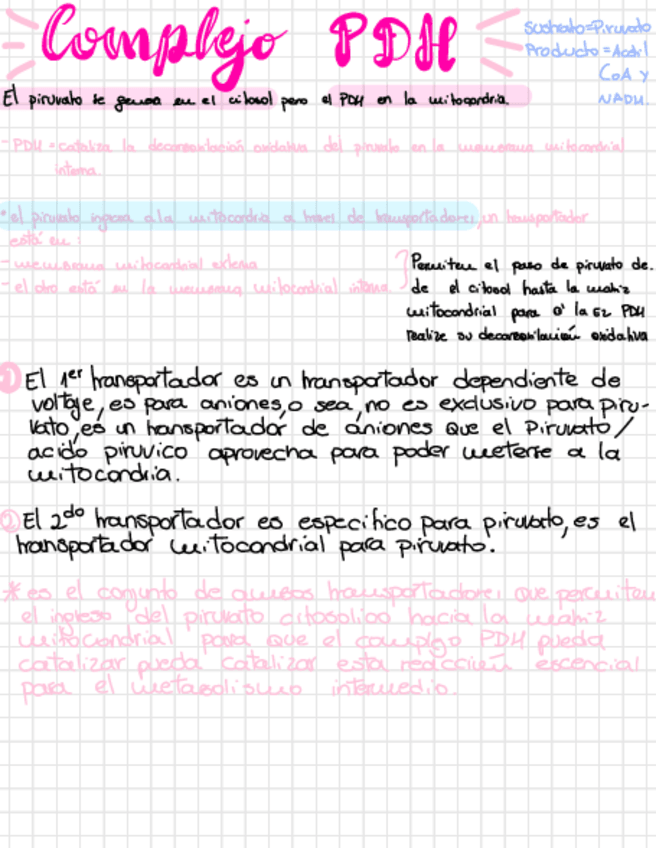 Complejo PDH
Sustrato=Piruvato
Producto=Acetil
CoA y
NADH.
El piruvato se genera en el citosol pero el PDH en la mitocondria.
-PDH=cataliza la decarboxilación oxidativa del piruvato en la membrana mitocondrial
interna.
•el piruvato ingresa a la mitocondria a traves de transportadores, un transportador
está en:
-membrana mitocondrial externa
-el otro está en la membrana mitocondrial interna.
Permiten el paso de piruvato de.
de el citosol hasta la matriz
mitocondrial para q' la PDH
realize su decarboxilación oxidativa
① El 1er transportador es un transportador dependiente de
voltaje, es para aniones, o sea, no es exclusivo para piru-
vato, es un transportador de aniones que el Piruvato/
acido piruvico aprovecha para poder meterse a la
mitocondria.
② El 2do transportador es especifico para piruvato, es el
transportador mitocondrial para piruvato.
* es el conjunto de ambos transportadores que permiten
el ingreso del piruvato citosolico hacia la matriz
mitocondrial para que el complejo PDH pueda
catalizar pueda catalizar esta reacción escencial
para el metabolismo intermedio.